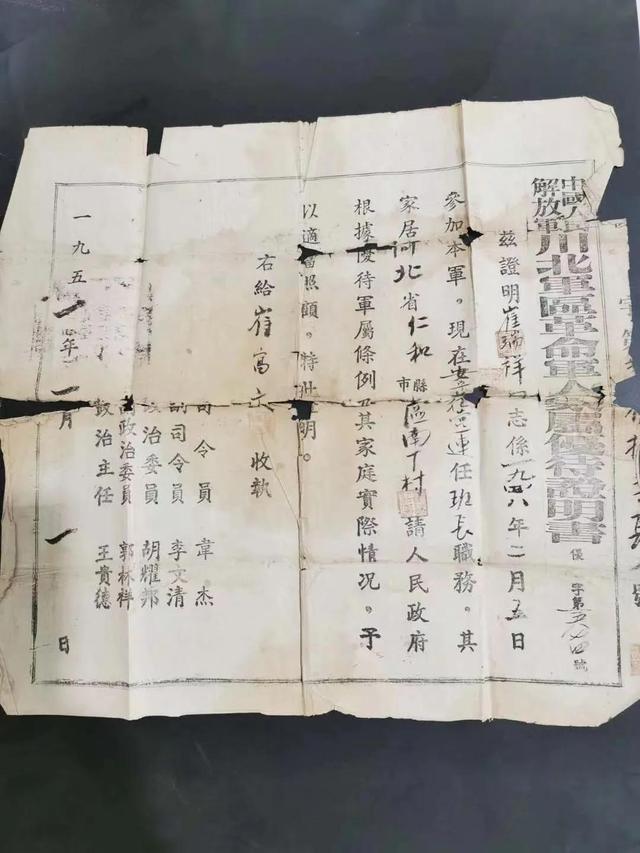 中國人
解放軍川北軍區革命軍人家屬優待證明書
優 字第 號
茲證明崔瑞祥 志係一九四八年二月五日
參加本軍。現在 連任班長職務。其
家居河北省仁和 縣市 區南下村 請人民政府
根據優待軍屬條例及其家庭實際情況。予
以適當照顧。特此 明。
右給崔高文 收執
司令員 韋 杰
副司令員 李文清
政治委員 胡耀邦
副政治委員 郭林祥
政治主任 王貴德
一九五一年一月一日